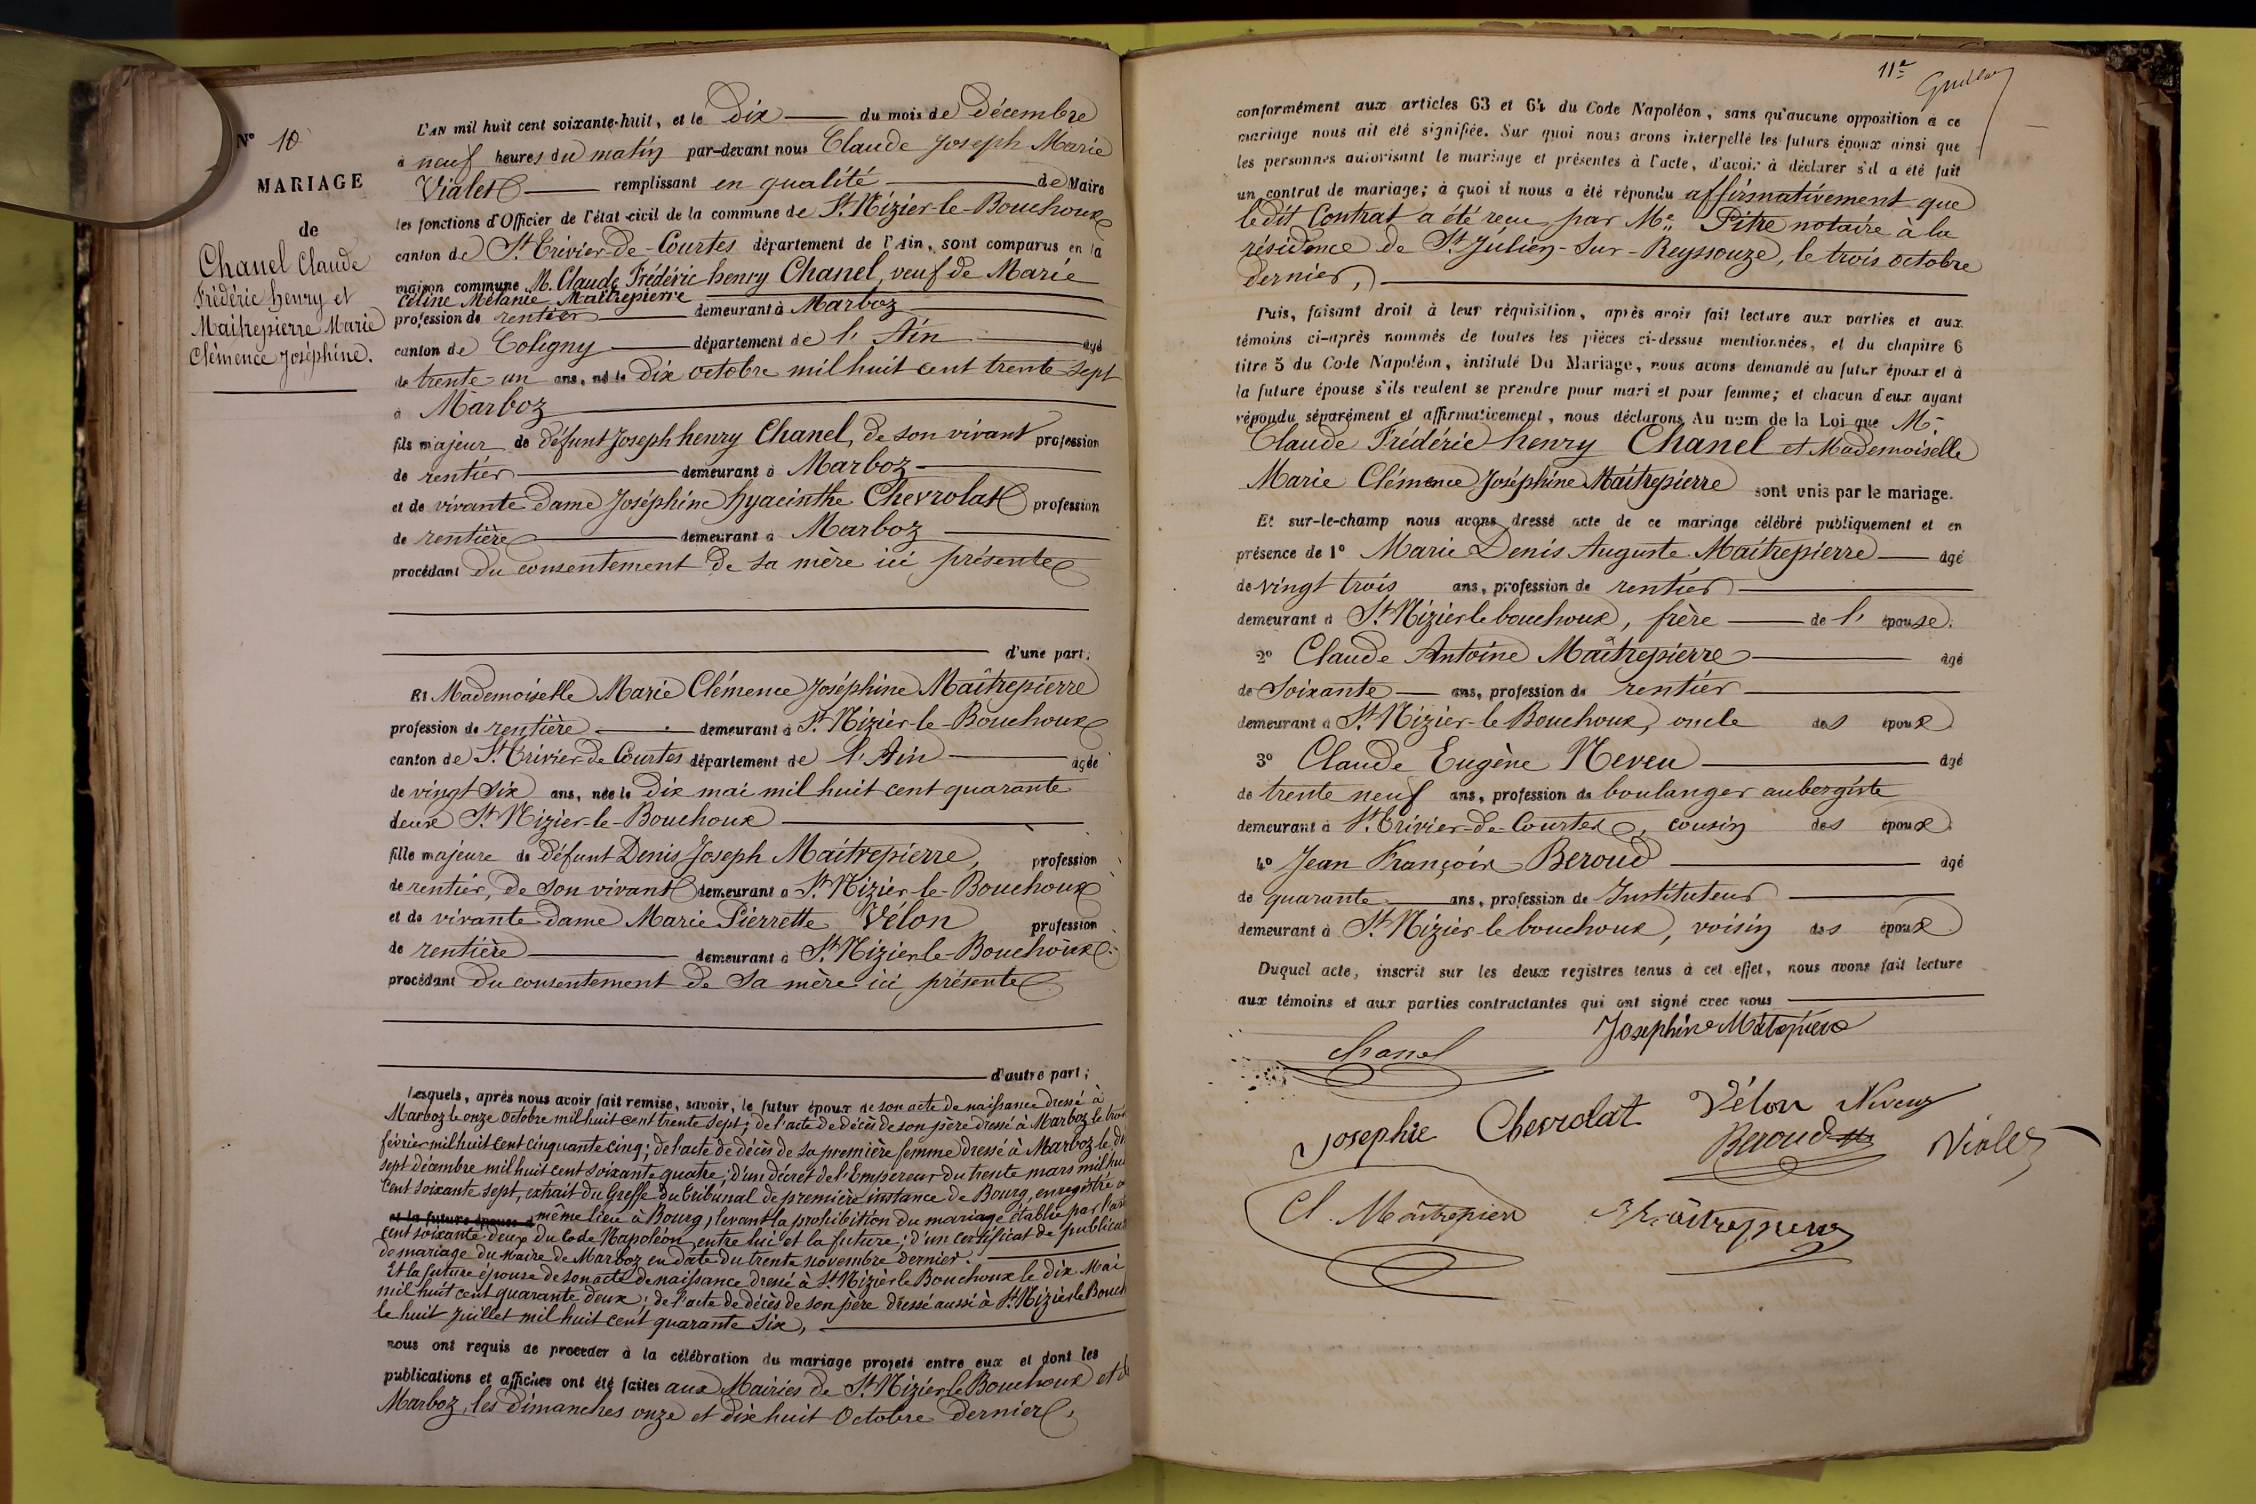 N° 10
MARIAGE
de
Chanel Claude
Frédéric henry et
Maitrepierre Marie
Clémence Joséphine.
L'AN mil huit cent soixante-huit, et le Dix du mois de Décembre
à neuf heures du matin par-devant nous Claude Joseph Marie
Vialet remplissant en qualité de Maire
les fonctions d'Officier de l'état-civil de la commune de St Nizier-le-Bouchoux
canton de St Trivier-de-Courtes département de l'Ain, sont comparus en la
maison commune M. Claude Frédéric henry Chanel, veuf de Marie
Céline Mélanie Maitrepierre
profession de rentier demeurant à Marboz
canton de Coligny département de l'Ain âgé
de trente-un ans, né le Dix octobre mil huit cent trente-sept
à Marboz
fils majeur de défunt Joseph henry Chanel, de son vivant profession
de rentier demeurant à Marboz
et de vivante dame Joséphine hyacinthe Chevrolat profession
de rentière demeurant à Marboz
procédant du consentement de sa mère ici présente
d'une part;
Et Mademoiselle Marie Clémence Joséphine Maîtrepierre
profession de rentière demeurant à St Nizier-le-Bouchoux
canton de St Trivier-de-Courtes département de l'Ain âgée
de vingt six ans, née le Dix mai mil huit cent quarante
deux St Nizier-le-Bouchoux
fille majeure de défunt Denis Joseph Maitrepierre, profession
de rentier, de son vivant demeurant à St Nizier-le-Bouchoux
et de vivante dame Marie Pierrette Vélon profession
de rentière demeurant à St Nizier-le-Bouchoux
procédant du consentement de sa mère ici présente
d'autre part;
Lesquels, après nous avoir fait remise, savoir, le futur époux de son acte de naissance dressé à
Marboz le onze Octobre mil huit cent trente sept; de l'acte de décès de son père dressé à Marboz le trois
février mil huit cent cinquante cinq; de l'acte de décès de sa première femme dressé à Marboz le di
sept décembre mil huit cent soixante quatre; d'un décret de l'Empereur du trente mars mil hui
cent soixante sept, extrait du Greffe du tribunal de première instance de Bourg, enregistré a
et la future épouse d même lieu à Bourg, levant la prohibition du mariage établie par l'art
cent soixante-deux du Code Napoléon, entre lui et la future; d'un certificat de publicat
de mariage du Maire de Marboz en date du trente novembre dernier.
Et la future épouse de son acte de naissance dressé à St Nizier le Bouchoux le dix Mai
mil huit cent quarante deux; de l'acte de décès de son père dressé aussi à St Nizier le Bouch
le huit Juillet mil huit cent quarante six,
nous ont requis de procéder à la célébration du mariage projeté entre eux et dont les
publications et affiches ont été faites aux Mairies de St Nizier le Bouchoux et d
Marboz, les dimanches onze et dix huit Octobre dernier,
11e
conformément aux articles 63 et 64 du Code Napoléon, sans qu'aucune opposition à ce
mariage nous ait été signifiée. Sur quoi nous avons interpellé les futurs époux ainsi que
les personnes autorisant le mariage et présentes à l'acte, d'avoir à déclarer s'il a été fait
un contrat de mariage; à quoi il nous a été répondu affirmativement que
le dit Contrat a été reçu par Me Pitre notaire à la
résidence de St Julien-sur-Reyssouze, le trois octobre
dernier,
Puis, faisant droit à leur réquisition, après avoir fait lecture aux parties et aux
témoins ci-après nommés de toutes les pièces ci-dessus mentionnées, et du chapitre 6
titre 5 du Code Napoléon, intitulé Du Mariage, nous avons demandé au futur époux et à
la future épouse s'ils veulent se prendre pour mari et pour femme; et chacun d'eux ayant
répondu séparément et affirmativement, nous déclarons Au nom de la Loi que M.
Claude Frédéric henry Chanel et Mademoiselle
Marie Clémence Joséphine Maitrepierre sont unis par le mariage.
Et sur-le-champ nous avons dressé acte de ce mariage célébré publiquement et en
présence de 1° Marie Denis Auguste Maitrepierre âgé
de vingt trois ans, profession de rentier
demeurant à St Nizier le bouchoux, frère de l'épouse.
2° Claude Antoine Maîtrepierre âgé
de soixante ans, profession de rentier
demeurant à St Nizier-le Bouchoux, oncle des époux
3° Claude Eugène Neveu âgé
de trente neuf ans, profession de boulanger aubergiste
demeurant à St Trivier-de-Courtes, cousin des époux
4° Jean François Beroud âgé
de quarante ans, profession de Instituteur
demeurant à St Nizier le bouchoux, voisin des époux
Duquel acte, inscrit sur les deux registres tenus à cet effet, nous avons fait lecture
aux témoins et aux parties contractantes qui ont signé avec nous
Josephine Maitrepierre
Chanel
Vélon Neveu
Josephie Chevrolat
Beroud Vialet
Cl. Maitrepierre Maîtrepierre